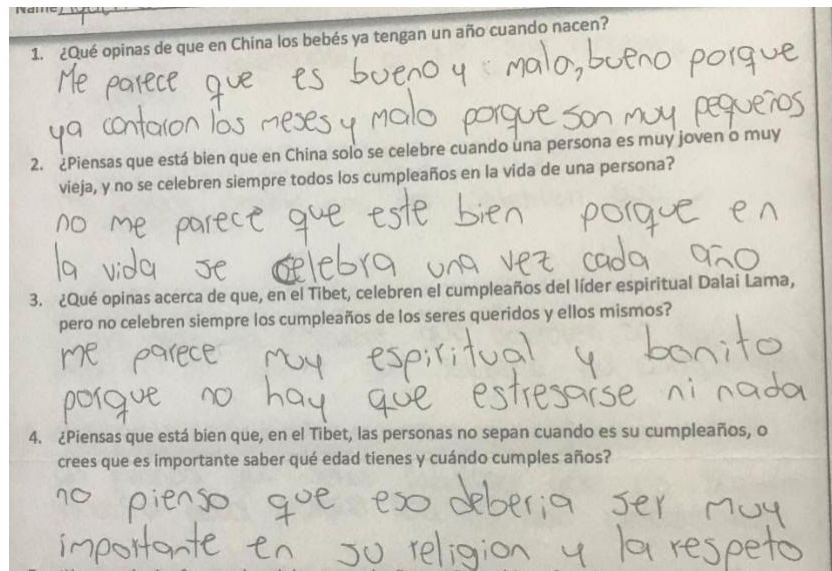 Name:
1. ¿Qué opinas de que en China los bebés ya tengan un año cuando nacen?
Me parece que es bueno y malo, bueno porque
ya contaron los meses y malo porque son muy pequeños
2. ¿Piensas que está bien que en China solo se celebre cuando una persona es muy joven o muy
vieja, y no se celebren siempre todos los cumpleaños en la vida de una persona?
no me parece que este bien porque en
la vida se celebra una vez cada año
3. ¿Qué opinas acerca de que, en el Tibet, celebren el cumpleaños del líder espiritual Dalai Lama,
pero no celebren siempre los cumpleaños de los seres queridos y ellos mismos?
me parece muy espiritual y bonito
porque no hay que estresarse ni nada
4. ¿Piensas que está bien que, en el Tibet, las personas no sepan cuando es su cumpleaños, o
crees que es importante saber qué edad tienes y cuándo cumples años?
no pienso que eso deberia ser muy
importante en su religion y la respeto